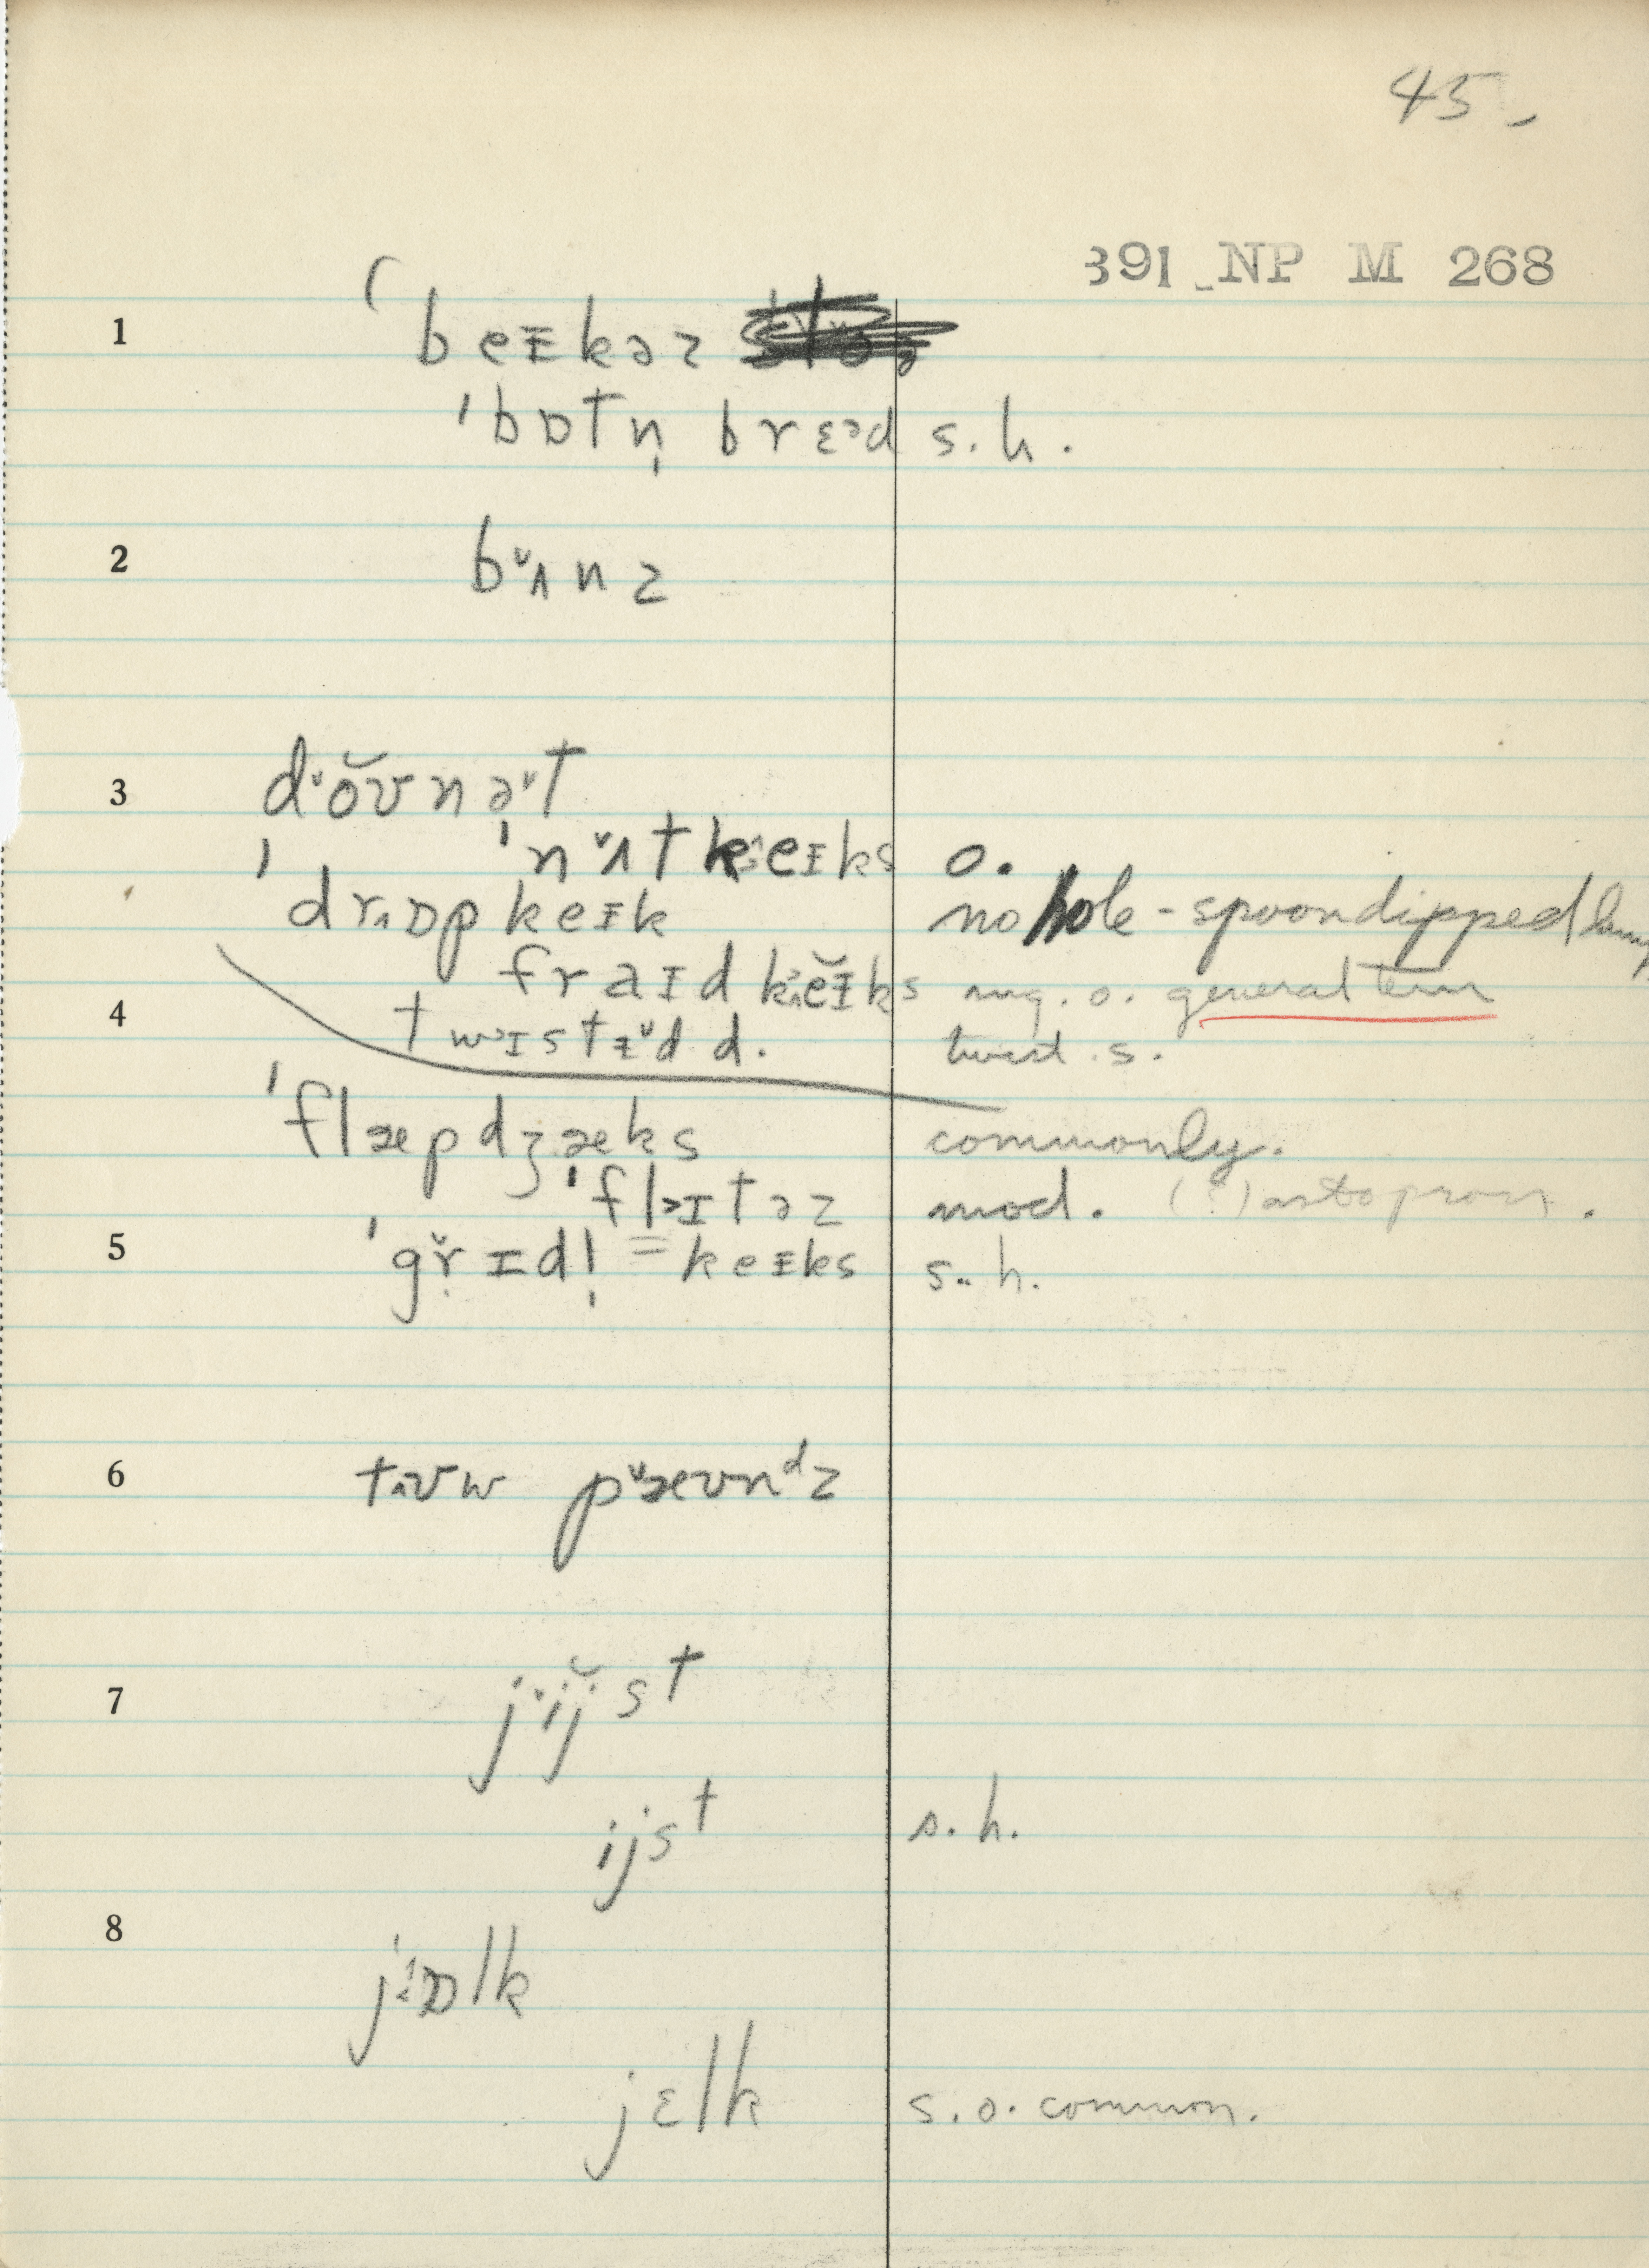 45
391 NP M 268
1 beɪkəz
ˈbɒtn̩ brɛəd s. h.
2 bʌnz
3 dŏʊnət
ˈnʌtkeɪks o.
ˈdrɒpkeɪk no hole - spoondipped
fraɪd keɪks o. general term
4 twɪstɨd d. twist. s.
ˈflæpdʒæks commonly.
ˈflaɪtəz mod. (?) as to pron.
5 ˈgrɪdl̩ = keɪks s. h.
6 tʊw pæʊnᵈz
7 jijst
ijst s. h.
8 jɒlk
jɛlk s. o. common.